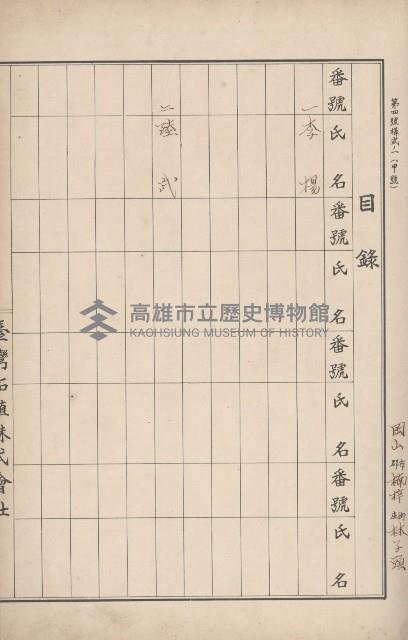 第四號樣式ノ一（甲號）
目錄
岡山郡市楠梓庄街林子頭
番號 氏名 番號 氏名 番號 氏名 番號 氏名
一 李楊
二 陸武
高雄市立歷史博物館
KAOHSIUNG MUSEUM OF HISTORY